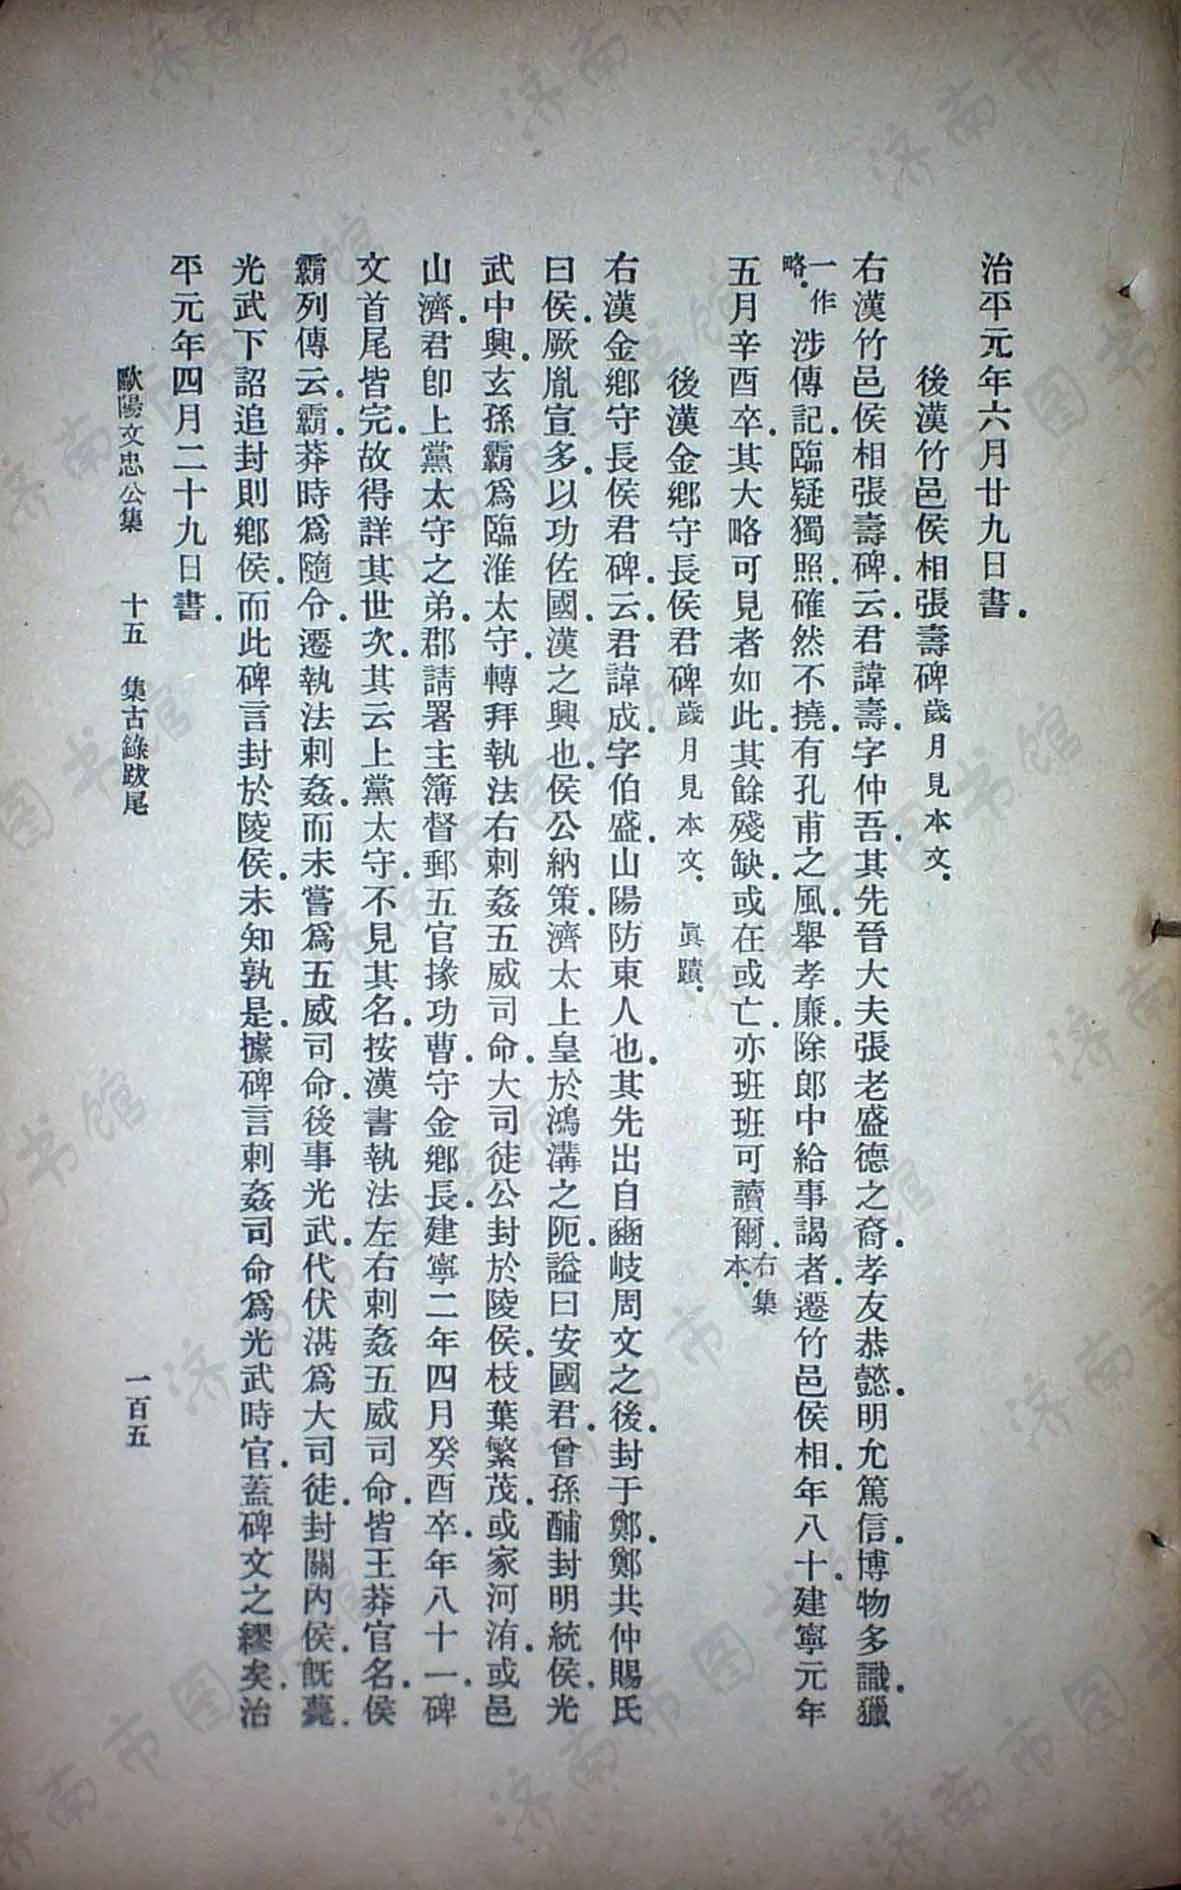 治平元年六月廿九日書。
後漢竹邑侯相張壽碑歲月見本文。
右漢竹邑侯相張壽碑。云。君諱壽。字仲吾。其先晉大夫張老盛德之裔。孝友恭懿。明允篤信。博物多識。獵
一作略。涉傳記。臨疑獨照。確然不撓。有孔甫之風。舉孝廉。除郎中給事謁者。遷竹邑侯相。年八十。建寧元年
五月辛酉卒。其大略可見者如此。其餘殘缺。或在或亡。亦班班可讀爾。右集本。
後漢金鄉守長侯君碑歲月見本文。 眞蹟。
右漢金鄉守長侯君碑。云。君諱成。字伯盛。山陽防東人也。其先出自豳岐周文之後。封于鄭。鄭共仲賜氏
曰侯。厥胤宣多。以功佐國。漢之興也。侯公納策。濟太上皇於鴻溝之阨。謚曰安國君。曾孫酺封明統侯。光
武中興。玄孫霸爲臨淮太守。轉拜執法右刺姦五威司命。大司徒公封於陵侯。枝葉繁茂。或家河洧。或邑
山濟。君卽上黨太守之弟。郡請署主簿督郵五官掾功曹。守金鄉長。建寧二年四月癸酉卒。年八十一。碑
文首尾皆完。故得詳其世次。其云上黨太守。不見其名。按漢書執法左右刺姦五威司命。皆王莽官名。侯
霸列傳云。霸。莽時爲隨令。遷執法刺姦。而未嘗爲五威司命。後事光武。代伏湛爲大司徒。封關內侯。旣薨。
光武下詔追封則鄉侯。而此碑言封於陵侯。未知孰是。據碑言刺姦司命爲光武時官。蓋碑文之繆矣。治
平元年四月二十九日書。
歐陽文忠公集 十五 集古錄跋尾 一百五
济南市图书馆